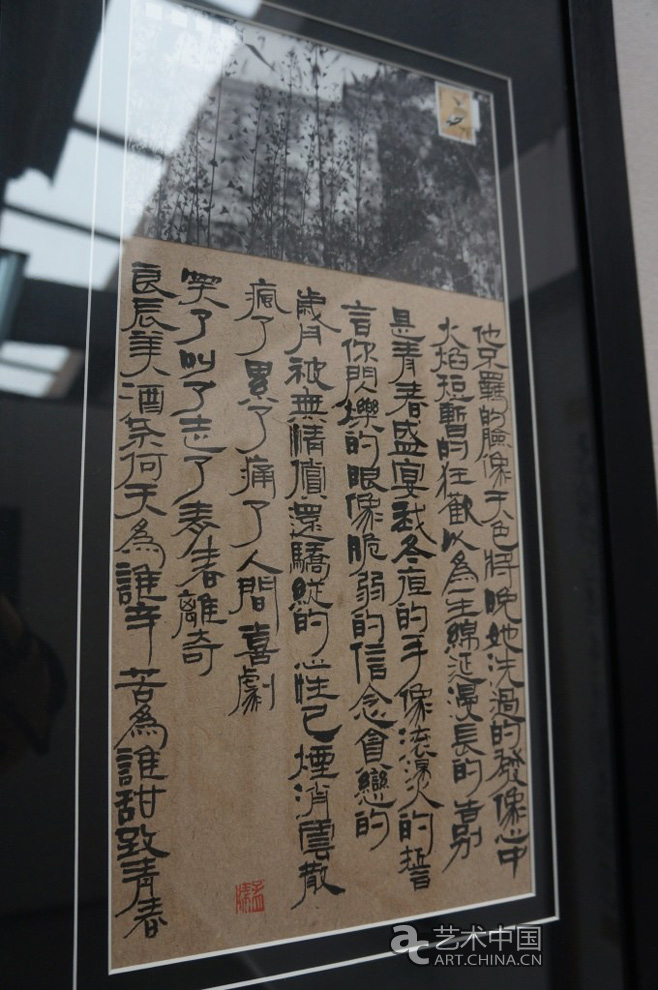 他不羈的臉像天色將晚她洗過的發像心中
火焰短暫的狂歡以為一生綿延漫長的告別
是青春盛宴我冬夜的手像滾燙的誓
言你閃爍的眼像脆弱的信念貪戀的
歲月被無情償還驕縱的心性已煙消雲散
瘋了累了痛了人間喜劇
笑了叫了走了青春離奇
良辰美酒奈何天為誰辛苦為誰甜致青春
艺术中国
ART.CHINA.CN